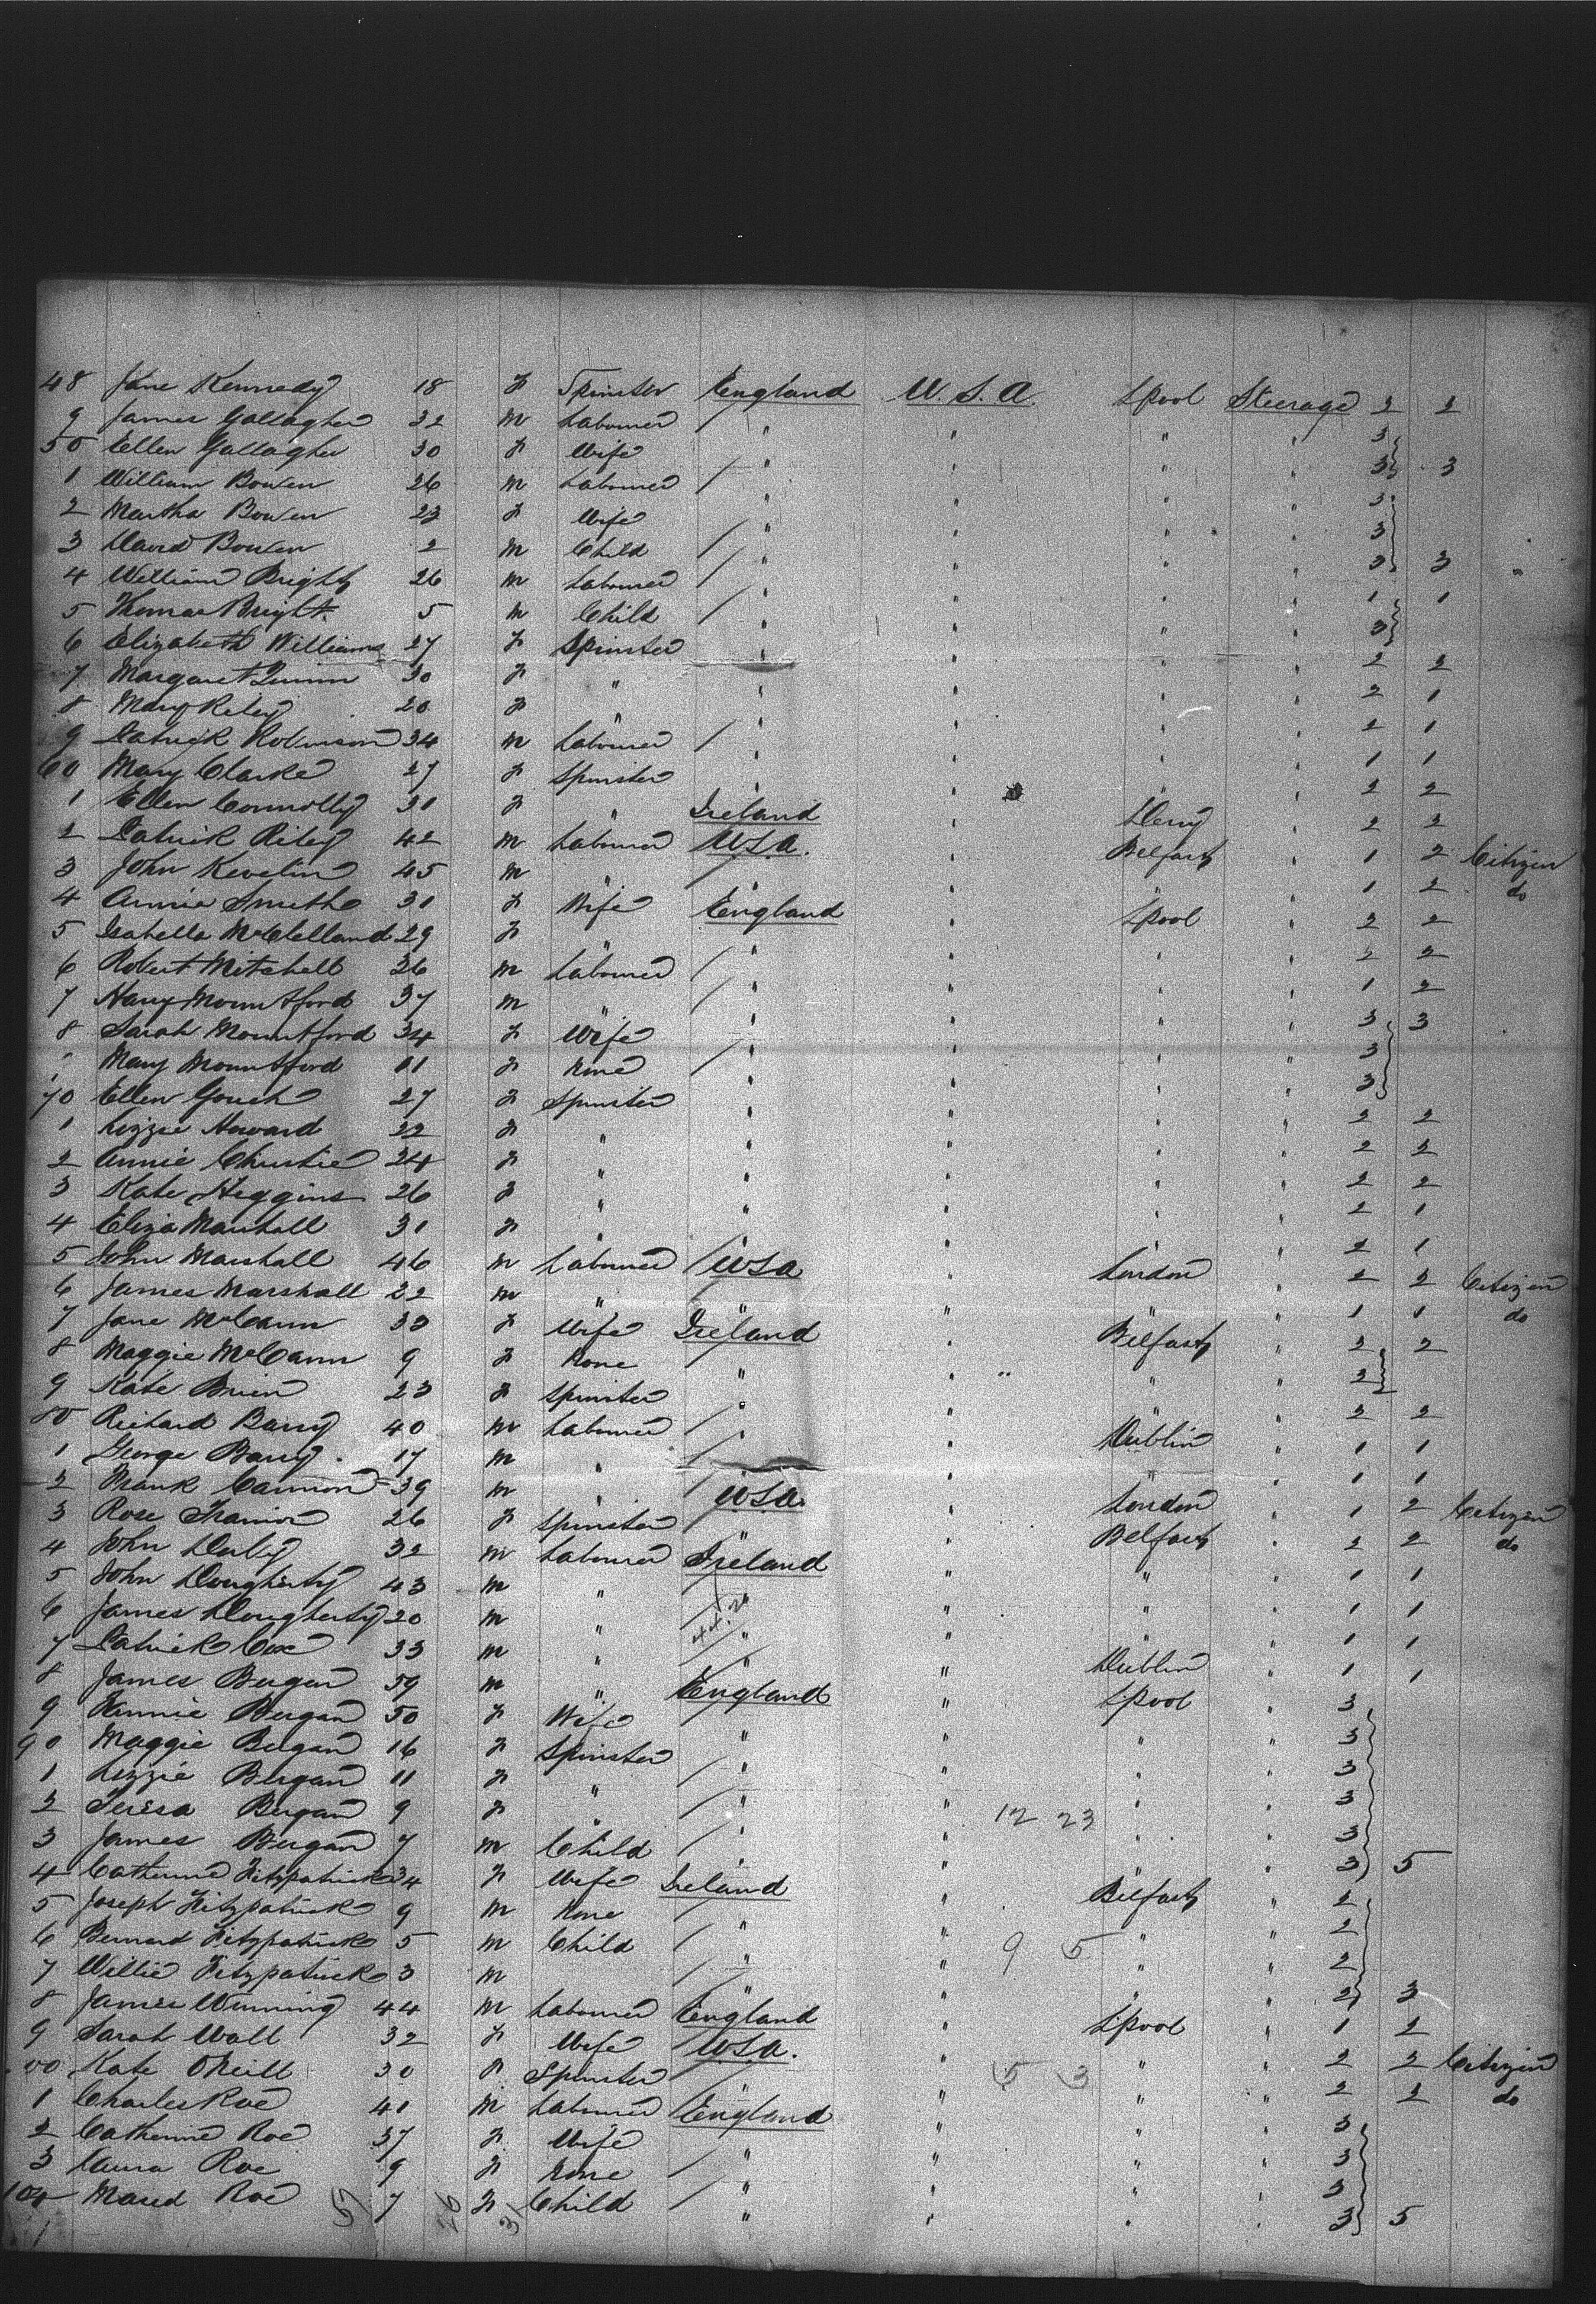 48 Jane Kennedy 18 F Spinster England U.S.A. L'pool Steerage 2 2
9 James Gallagher 32 M Labourer / " " " " 3
50 Ellen Gallagher 30 F Wife " " " " 3 3
1 William Bowen 26 M Labourer / " " " " 3
2 Martha Bowen 23 F Wife " " " " 3
3 David Bowen 2 M Child / " " " " 3 3
4 William Bright 26 M Labourer / " " " " 1 1
5 Thomas Bright 5 M Child / " " " " 3
6 Elizabeth Williams 27 F Spinster " " " " 2 2
7 Margaret Quinn 30 F " " " " " 2 1
8 Mary Riley 20 F " " " " " 2 1
9 Patrick Robinson 34 M Labourer / " " " " 1 1
60 Mary Clarke 27 F Spinster " " " " 2 2
1 Ellen Connolly 31 F " Ireland " Derry " 2 2
2 Patrick Riley 42 M Labourer USA. " Belfast " 1 2 Citizen
3 John Kevelin 45 M " / " " " " 1 2 do
4 Annie Smith 31 F Wife England " L'pool " 2 2
5 Isabella McClelland 29 F " " " " " 2 2
6 Robert Mitchell 36 M Labourer / " " " " 1 2
7 Harry Mountford 37 M " / " " " " 3 3
8 Sarah Mountford 34 F Wife " " " " 3
Mary Mountford 11 F None / " " " " 3
70 Ellen Gouch 27 F Spinster " " " " 2 2
1 Lizzie Howard 22 F " " " " " 2 2
2 Annie Christie 24 F " " " " " 2 2
3 Kate Heggins 26 F " " " " " 2 1
4 Eliza Marshall 31 F " " " " " 2 1
5 John Marshall 46 M Labourer / USA " London " 2 2 Citizen
6 James Marshall 22 M " / " " " " 1 1 do
7 Jane McCann 33 F Wife Ireland " Belfast " 2 2
8 Maggie McCann 9 F None / " " " " 2
9 Kate Brien 23 F Spinster " " " " 2 2
80 Richard Barry 40 M Labourer / " " Dublin " 1 1
1 George Barry 17 M " / " " " " 1 1
2 Frank Cannon 39 M " / USA. " London " 1 2 Citizen
3 Rose Trainor 26 F Spinster " " Belfast " 2 2 do
4 John Daly 32 M Labourer Ireland " " " 1 1
5 John Dougherty 43 M " " " " " 1 1
6 James Dougherty 20 M " / " " " " 1 1
7 Patrick Cox 33 M " / " " Dublin " 1 1
8 James Bergan 59 M " England " L'pool " 3
9 Annie Bergan 50 F Wife " " " " 3
90 Maggie Bergan 16 F Spinster " " " " 3
1 Lizzie Bergan 11 F " / " " " " 3
2 Teresa Bergan 9 F " / " " 12 23 " " 3
3 James Bergan 7 M Child / " " " " 3 5
4 Catherine Fitzpatrick 34 F Wife Ireland " Belfast " 2
5 Joseph Fitzpatrick 9 M None / " " " " 2
6 Bernard Fitzpatrick 5 M Child / " " 9 5 " " 2
7 Willie Fitzpatrick 3 M / " " " " 2 3
8 James Winning 44 M Labourer England " L'pool " 1 2
9 Sarah Wall 32 F Wife USA. " " " 2 2 Citizen
00 Kate O'Neill 30 F Spinster " " 5 3 " " 2 2 do
1 Charles Roe 41 M Labourer England " " " 3
2 Catherine Roe 37 F Wife " " " " 3
3 Laura Roe 9 F None / " " " " 3
104 Maud Roe 7 F Child / " " " " 3 5